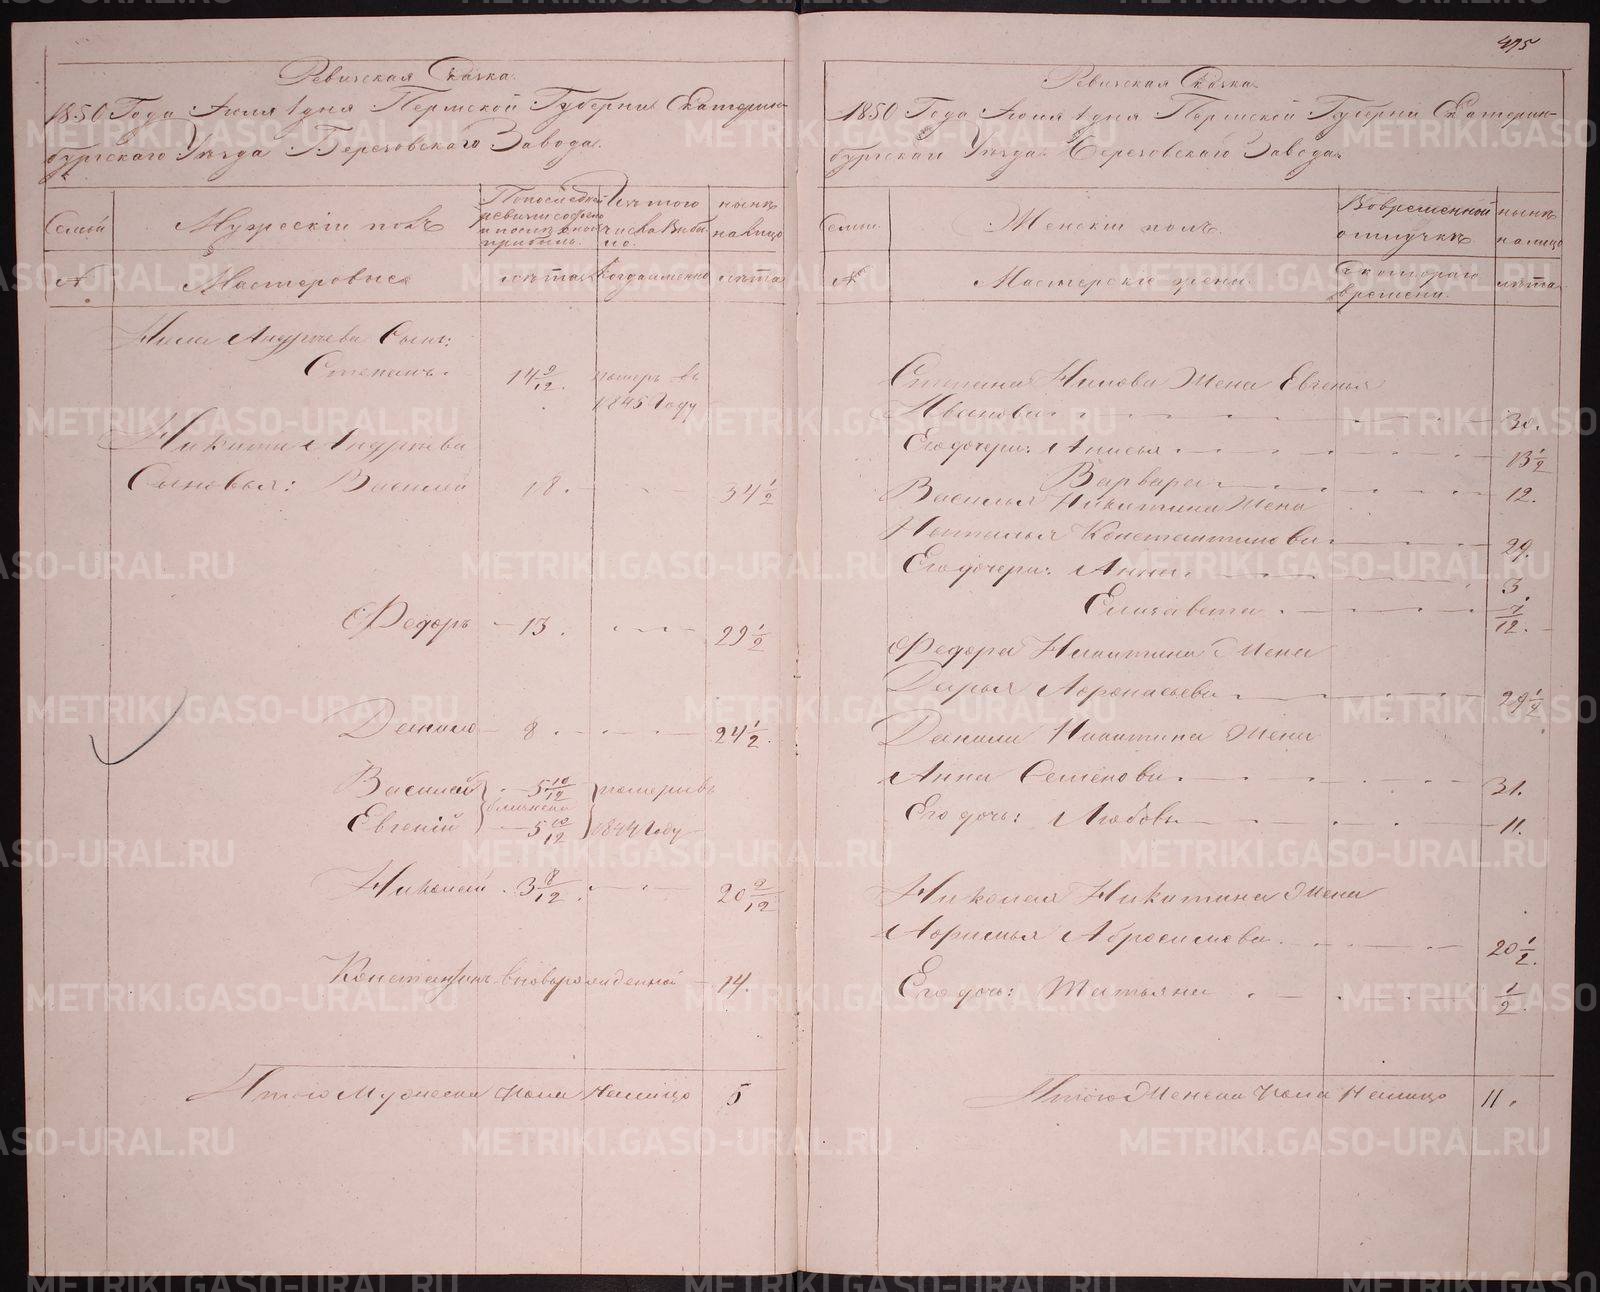 495
Ревизская Сказка.
1850 Года Июля 1 дня Пермской Губерніи Екатерин-
бургскаго Уезда Березовскаго Завода.
Семьи
Мужескій полъ
По последней
ревизіи состояло
и после оной
прибыло.
Изъ того
числа выбы-
ло.
ныне
на лицо
№
Мастеровые
лета
когда именно
лета
Нила Андреева Сынъ:
Степанъ. 14 9/12. померъ въ
1845 Году
Никиты Андреева
Сыновья: Василей 18. 34 1/2
Федоръ 13. 29 1/2
Данило 8. 24 1/2.
Василей 5 10/12 померли въ
близнецы
Евгеній 5 10/12 1844 Году
Николай 3 8/12. 20 2/12
Константинъ вновьрожденной 14.
Итого Мужеска пола На лицо 5
Ревизская Сказка
1850 Года Июля 1 дня Пермской Губерніи Екатерин-
бургскаго Уезда Березовскаго Завода
Семьи
Женскій полъ.
Во временной
отлучке
ныне
на лицо
№
Мастерскіе жены.
съ котораго
времени.
лета
Степана Нилова Жена Евгенья
Иванова 30.
Его дочери: Анисья 13 1/2
Варвара 12.
Василья Никитина Жена
Наталья Константинова 29.
Его дочери: Анна 3.
Елизавета 7/12.
Федора Никитина Жена
Дарья Афонасьева 29 1/2
Данила Никитина Жена
Анна Семенова 31.
Его дочь: Любовь 11.
Николая Никитина Жена
Афимья Абросимова 20 1/2.
Его дочь: Татьяна 1/2.
Итого Женска пола На лицо 11.
METRIKI.GASO-URAL.RU